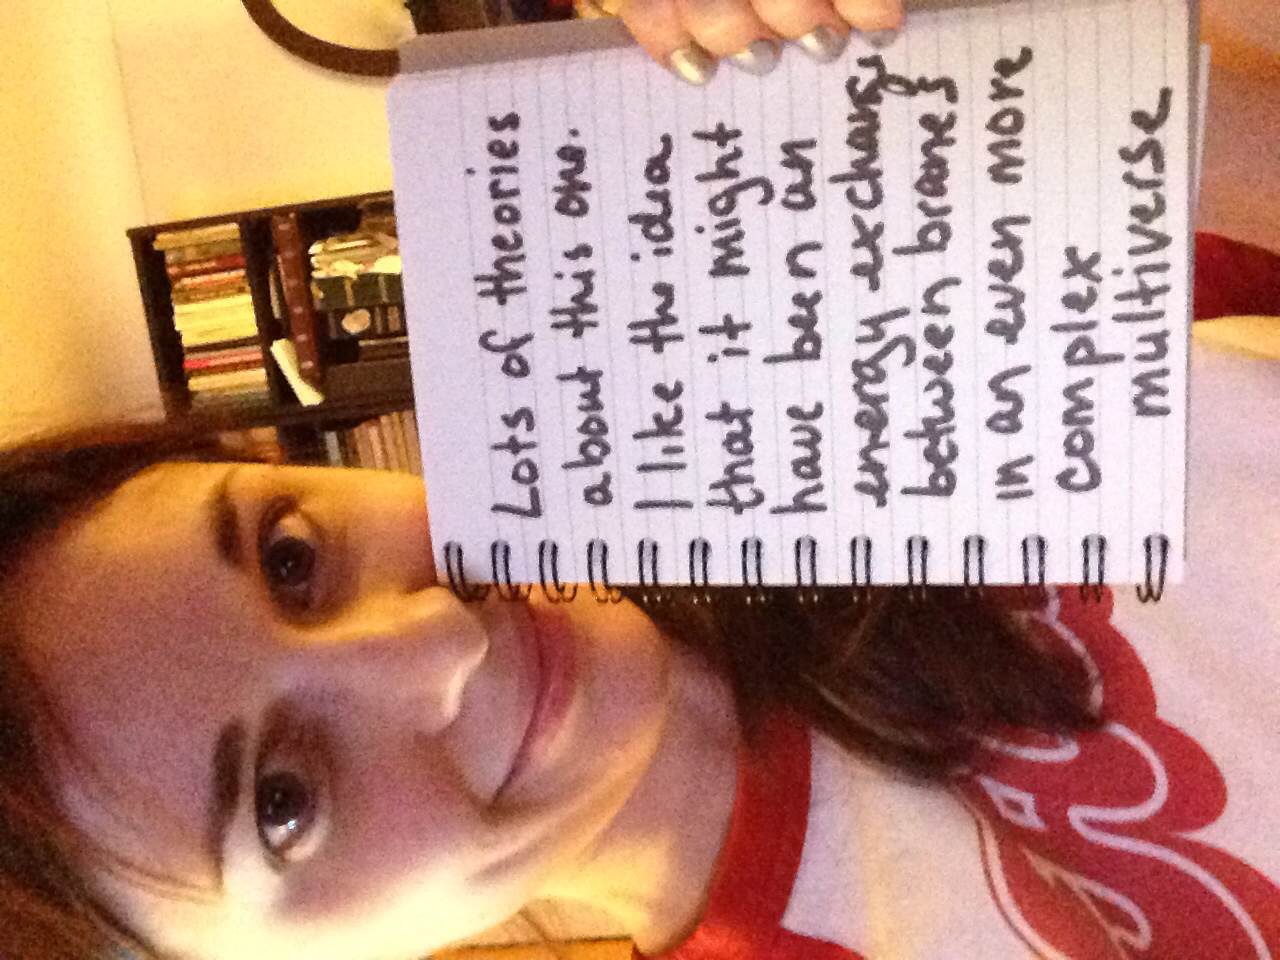 Lots of theories
about this one.
I like the idea
that it might
have been an
energy exchange
between branes
in an even more
complex
multiverse